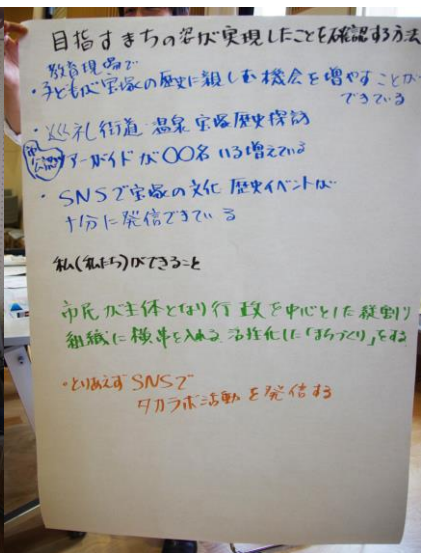 目指すまちの姿が実現したことを確認する方法
教育現場で
・子どもが宝塚の歴史に親しむ機会を増やすことが
できている
・巡礼街道 温泉 宝塚歴史探訪
市公認
ツアーガイドが〇〇名 いる増えている
・SNSで宝塚の文化 歴史イベントが
十分に発信できている
私(私たち)ができること
市民が主体となり行政を中心とした縦割り
組織に横串を入れる 活性化した「まちづくり」をする
・とりあえずSNSで
タカラボ活動を発信する